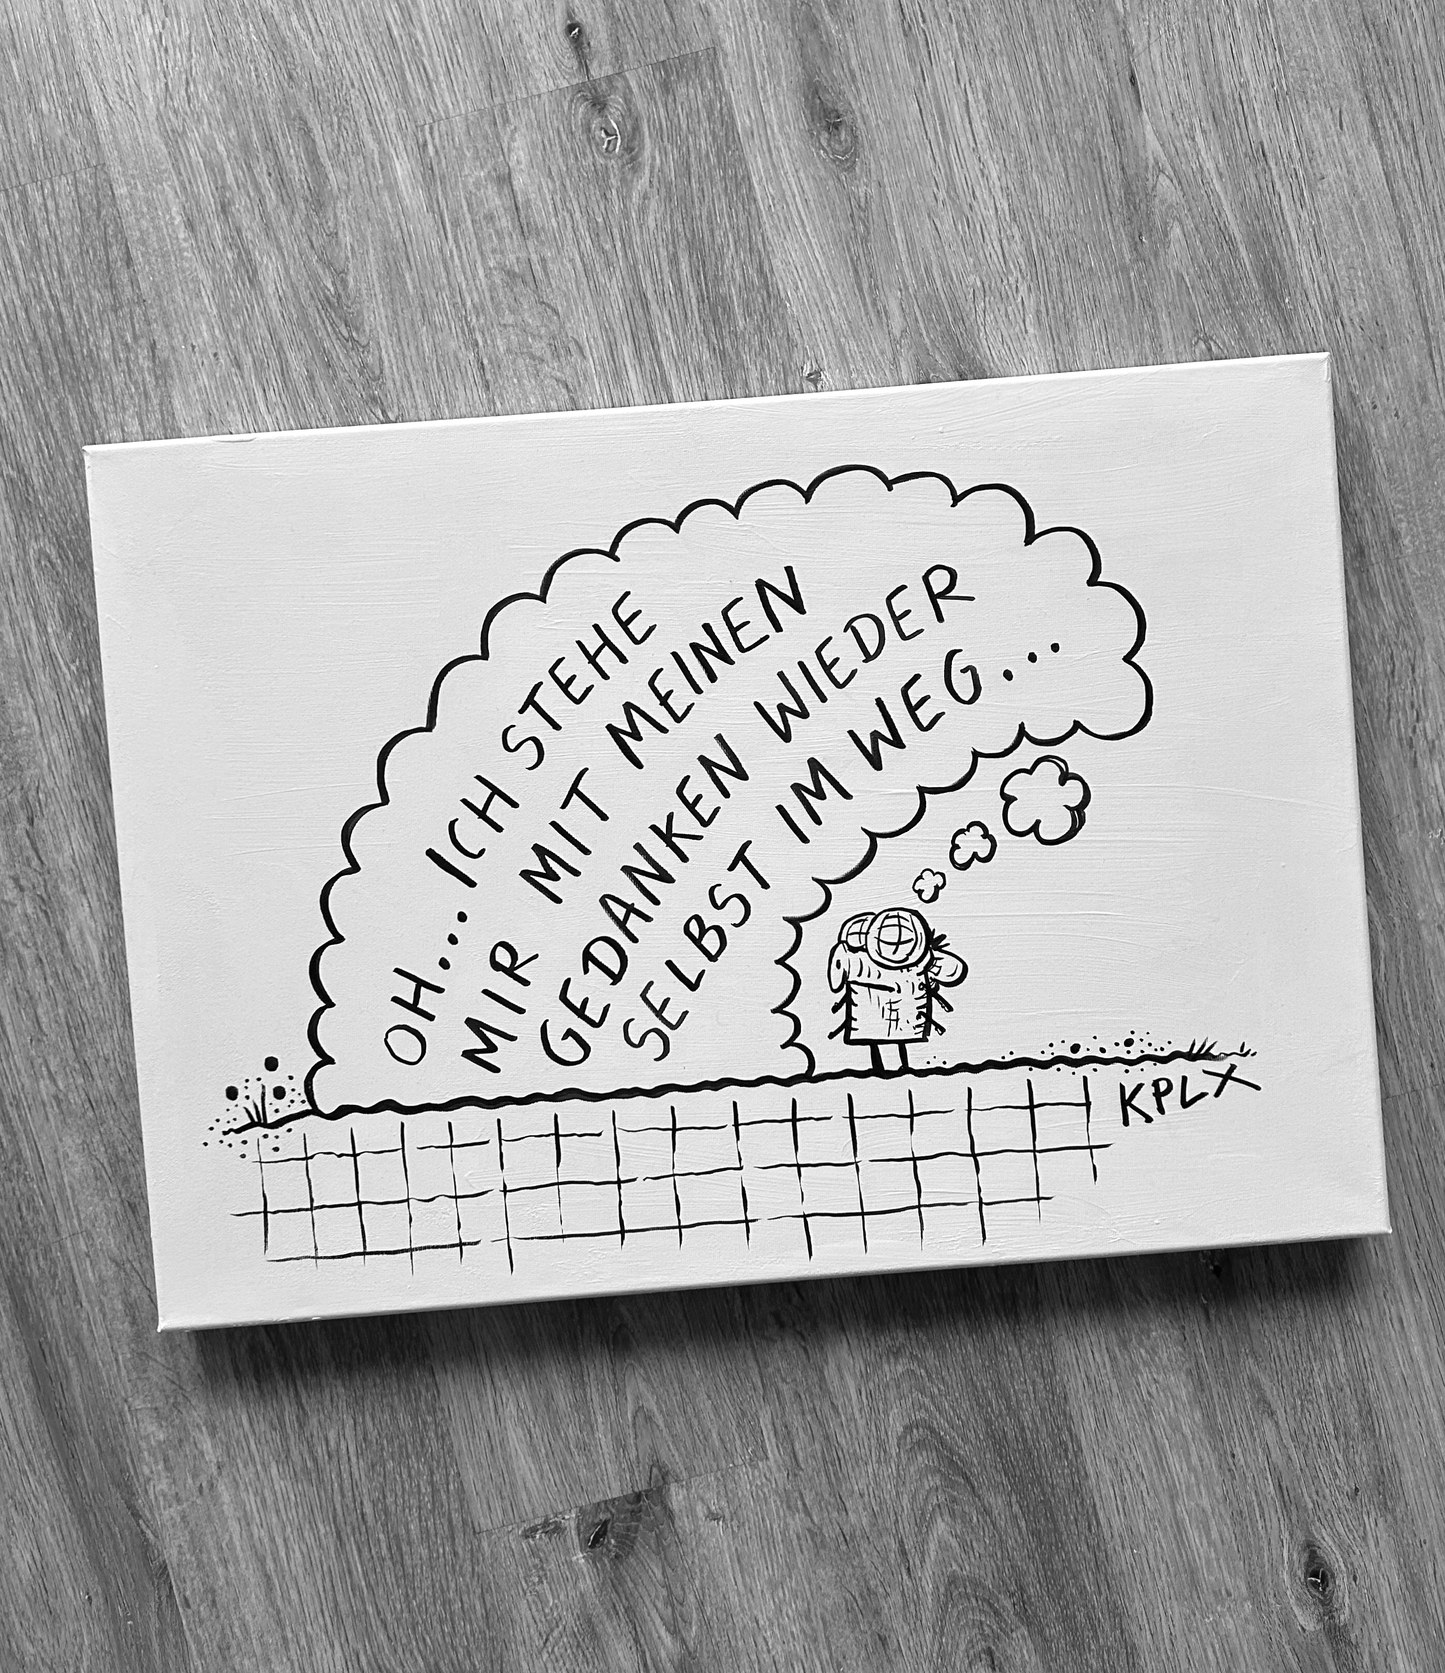 OH... ICH STEHE
MIR MIT MEINEN
GEDANKEN WIEDER
SELBST IM WEG...
KPLX